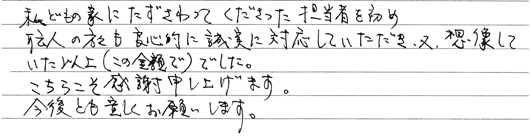 私どもの家にたずさわってくださった担当者を初め
職人の方も良心的に誠実に対応していただき、又、想像して
いた以上(この金額で)でした。
こちらこそ感謝申し上げます。
今後とも宜しくお願いします。